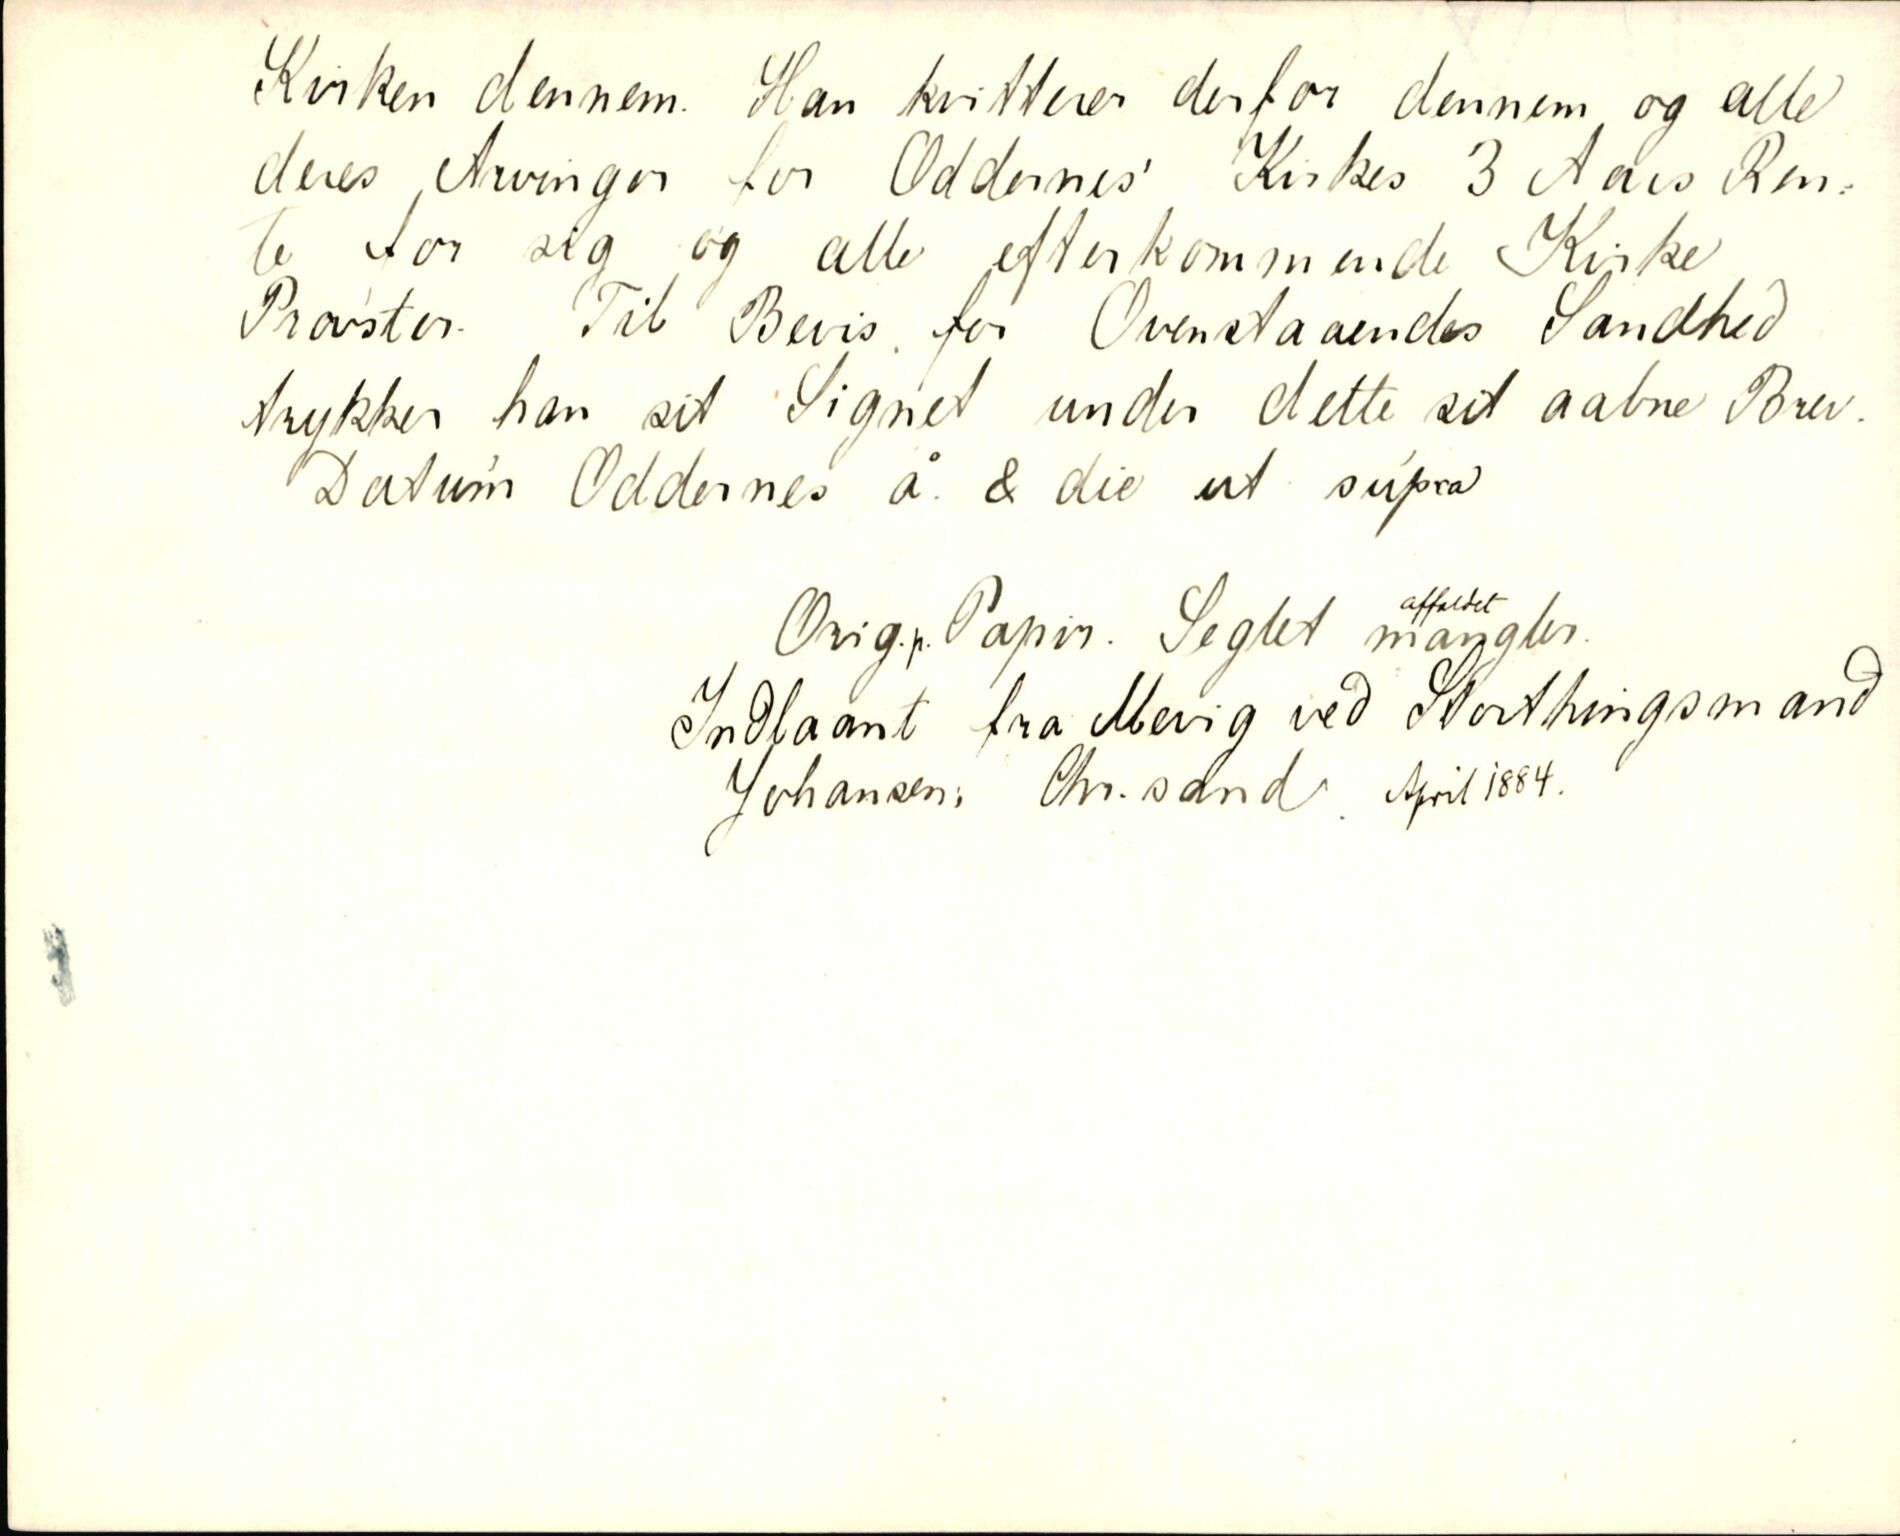 Kirken dennem. Han kvitterer derfor dennem og alle
deres Arvinger for Oddernes' Kirkes 3 Aars Ren-
te for sig og alle efterkommende Kirke
Provster. Til Bevis for Ovenstaaendes Sandhed
trykker han sit Signet under dette sit aabne Brev.
Datum Oddernes å. & die ut supra
Orig. p. Papir. Seglet affaldet mangler.
Indlaant fra Mevig ved Storthingsmand
Johansen, Chr.sand. April 1884.